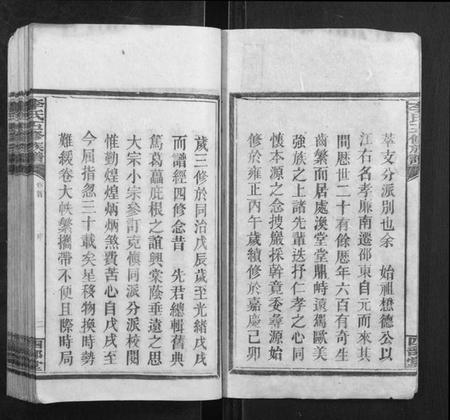 萃支分派別也余 始祖想德公以
江右名孝廉南遷邵東自元而來其
間歷世二十有餘歷年六百有奇生
齒繁而居處渙堂堂鼎峙遠篤歐美
強族之上諸先輩迭抒仁孝之心同
懷本源之念搜嚴採幹竟委尋源始
修於雍正丙午歲續修於嘉慶己卯
歲三修於同治戊辰歲至光緒戊戌
而譜經四修念昔 先君總輯舊典
篤葛藟庇根之誼興棠蔭垂遠之思
大宗小宗參訂克愼同派分派校閱
惟勤煌煌炳炳煞費苦心自戊戌至
今屈指忽三十載矣星移物換時勢
難緩卷大帙繁攜帶不便且際時局